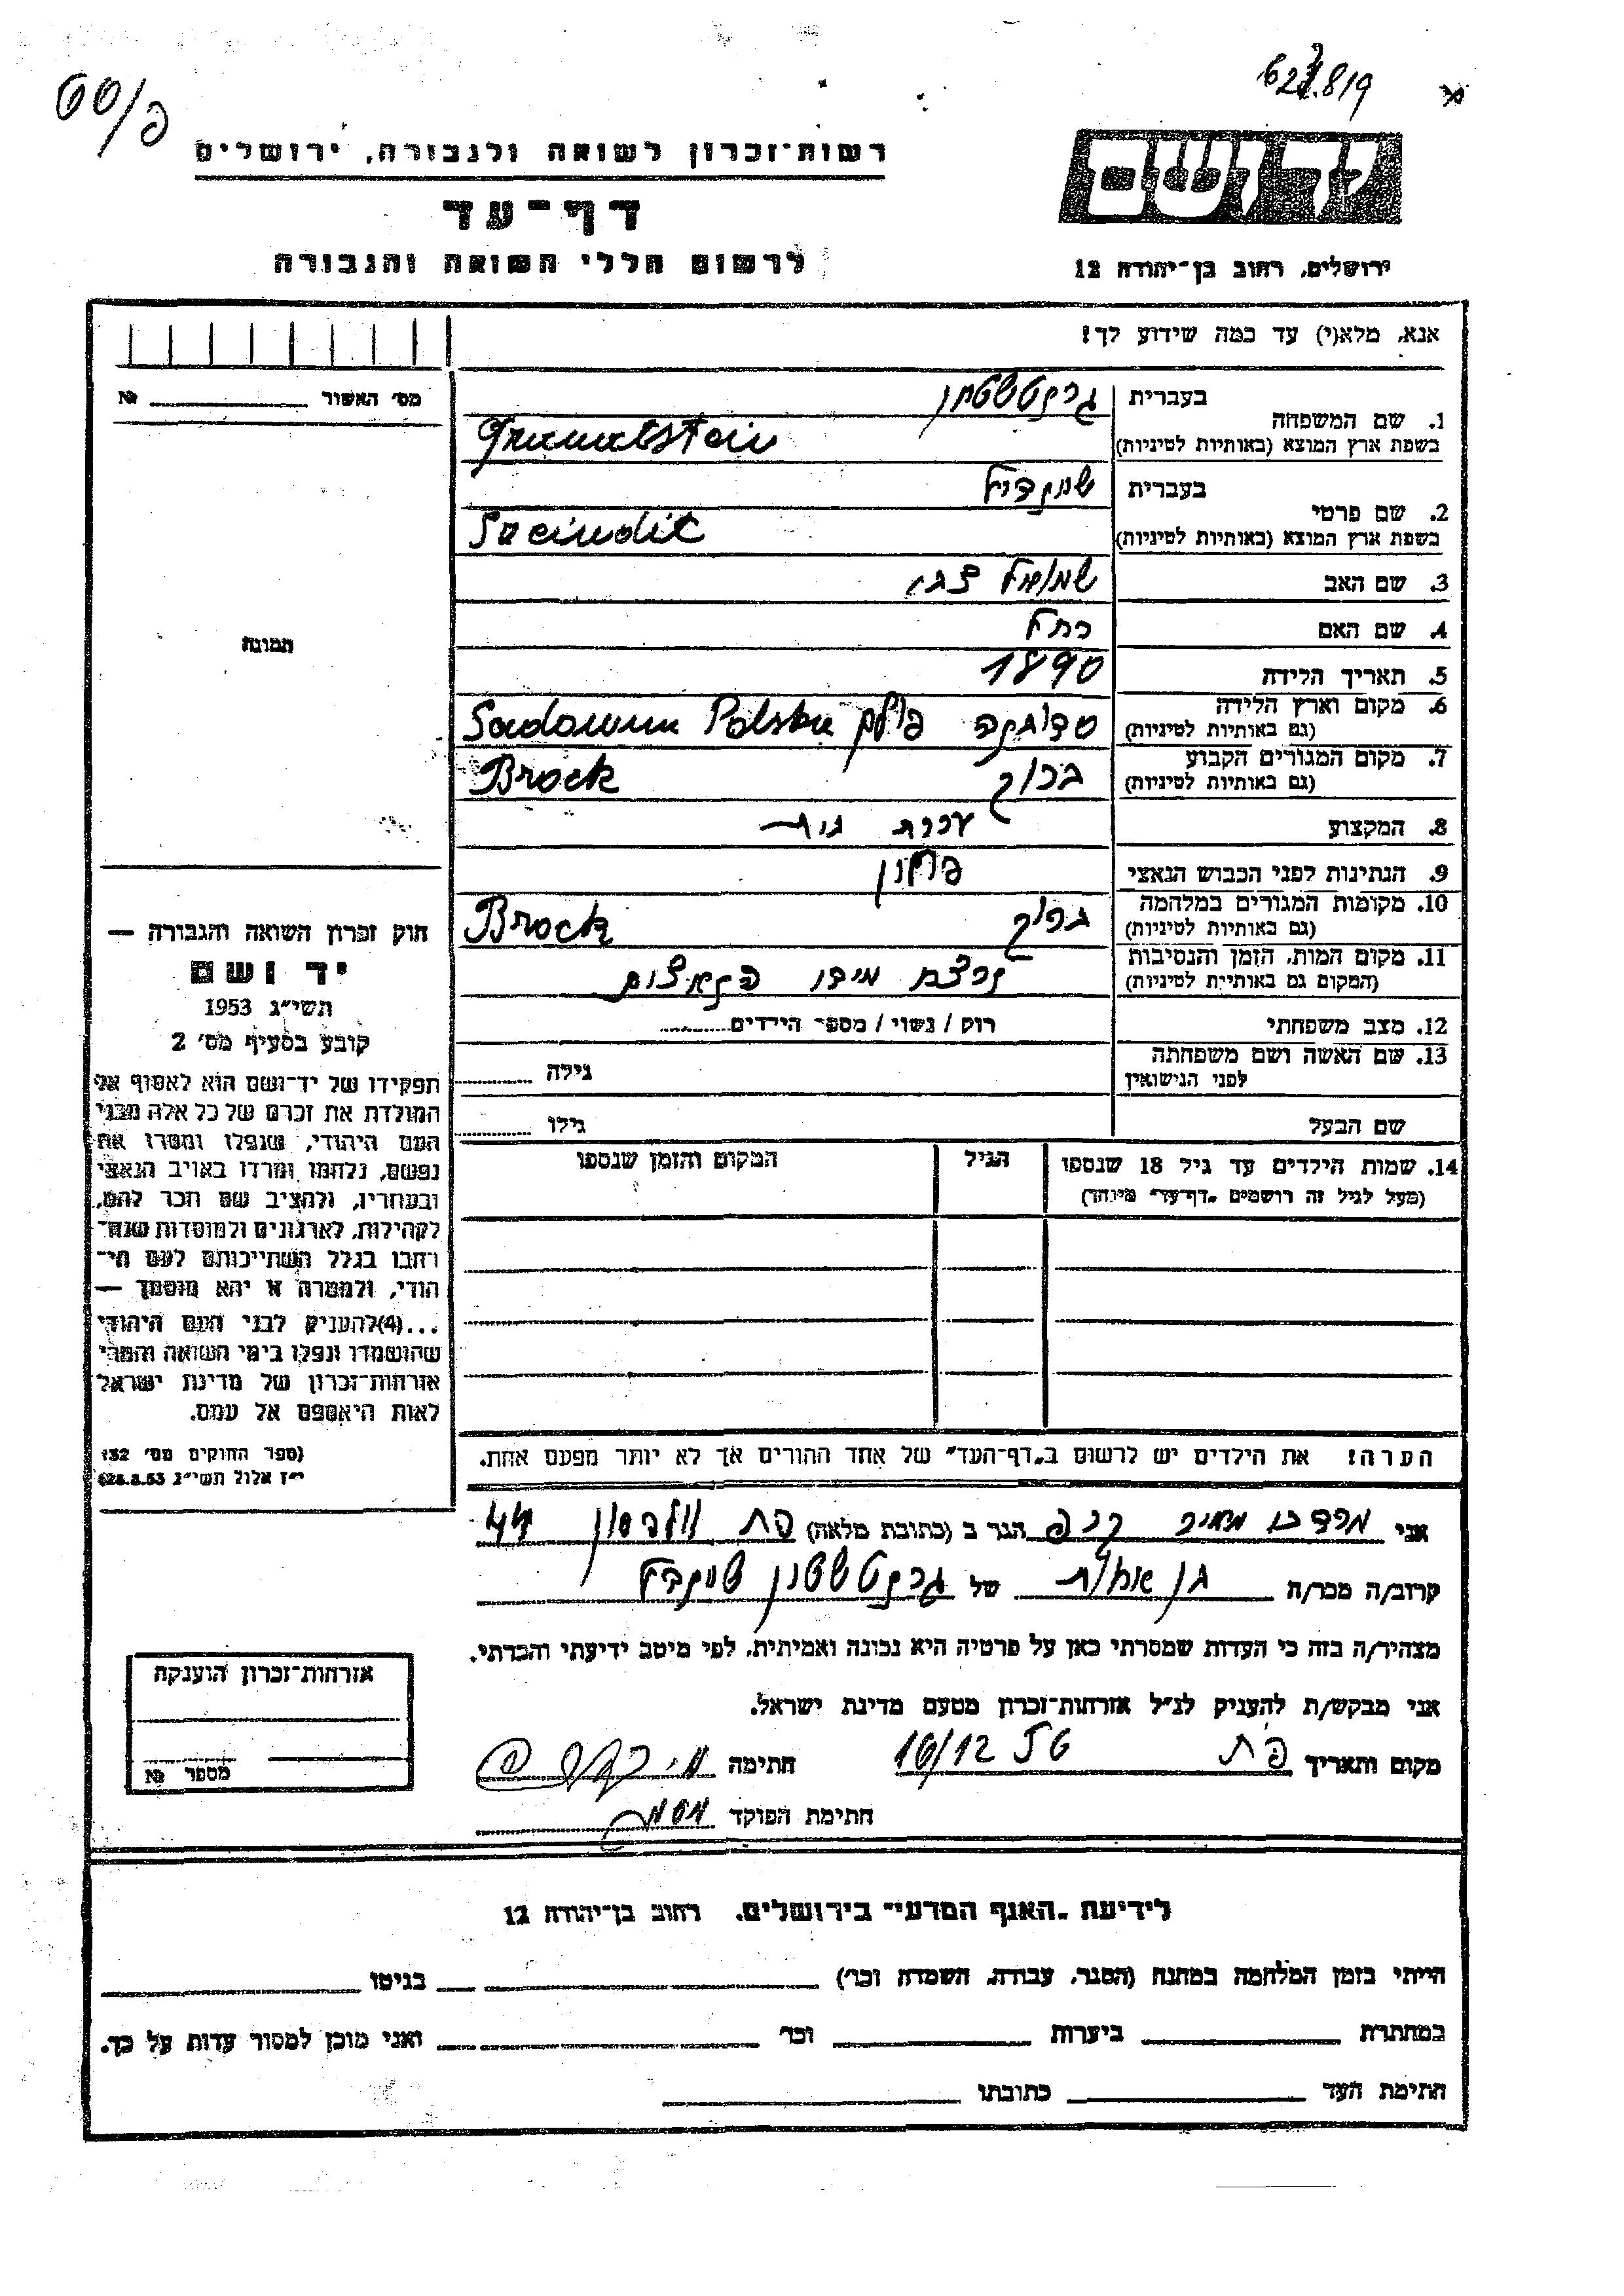 627.819
ס60/פ
רשות־זכרון לשואה ולגבורה, ירושלים
יד ושם
דף־עד
לרשום חללי השואה והגבורה
ירושלים, רחוב בן־יהודה 12
אנא, מלא(י) עד כמה שידוע לך!
מס׳ האשור № 
1. שם המשפחה
בעברית גרנטשטין
בשפת ארץ המוצא (באותיות לטיניות) Granatstein
2. שם פרטי
בעברית שינדיל
בשפת ארץ המוצא (באותיות לטיניות) Szeindil
3. שם האב שמואל צבי
4. שם האם רחל
5. תאריך הלידה 1890
6. מקום וארץ הלידה
(גם באותיות לטיניות) סדובנה פולין Sadowna Polska
7. מקום המגורים הקבוע
(גם באותיות לטיניות) ברוק Brock
8. המקצוע עקרת בית
9. הנתינות לפני הכבוש הנאצי פולין
10. מקומות המגורים במלחמה
(גם באותיות לטיניות) ברוק Brock
11. מקום המות, הזמן והנסיבות
(המקום גם באותיות לטיניות) נרצח מידי הנאצים
12. מצב משפחתי רוק / נשוי / מספר הילדים
13. שם האשה ושם משפחתה
לפני הנישואין גילה
שם הבעל גילו
14. שמות הילדים עד גיל 18 שנספו הגיל המקום והזמן שנספו
(מעל לגיל זה רושמים „דף־עד״ מיוחד)
תמונה
חוק זכרון השואה והגבורה —
יד ושם
תשי״ג 1953
קובע בסעיף מס׳ 2
תפקידו של יד־ושם הוא לאסוף אל
המולדת את זכרם של כל אלה מבני
העם היהודי, שנפלו ומסרו את
נפשם, נלחמו ומרדו באויב הנאצי
ובעוזריו, ולהציב שם וזכר להם,
לקהילות, לארגונים ולמוסדות שנח־
רבו בגלל השתייכותם לעם הי־
הודי, ולמטרה זו יהא מוסמך —
...(4)להעניק לבני העם היהודי
שהושמדו ונפלו בימי השואה והמרי
אזרחות־זכרון של מדינת ישראל
לאות היאספם אל עמם.
(ספר החוקים מס׳ 132
י״ז אלול תשי״ג 28.8.53)
הערה! את הילדים יש לרשום ב„דף־העד״ של אחד ההורים אך לא יותר מפעם אחת.
אני מרדכי מאיר הגר ב (כתובת מלאה) פת וולפסון 44
קרוב/ה מכר/ה בן אחות של גרנטשטין שינדיל
מצהיר/ה בזה כי העדות שמסרתי כאן על פרטיה היא נכונה ואמיתית, לפי מיטב ידיעתי והכרתי.
אני מבקש/ת להעניק לנ״ל אזרחות־זכרון מטעם מדינת ישראל.
מקום ותאריך פ״ת 16/12 חתימה
חתימת הפוקד
אזרחות־זכרון הוענקה
מספר №
לידיעת „האגף המדעי״ בירושלים. רחוב בן־יהודה 12
הייתי בזמן המלחמה במחנה (הסגר, עבודה, השמדה וכו׳) בגיטו
במחתרת ביערות וכו׳ ואני מוכן למסור עדות על כך.
חתימת העד כתובתו